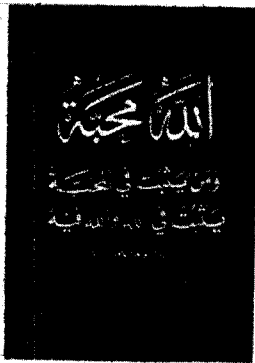 اللّٰهُ مَحَبَّة
وَمَنْ يَثْبُتْ فِي المَحَبَّة
يَثْبُتْ فِي اللّٰه وَاللّٰه فِيهِ